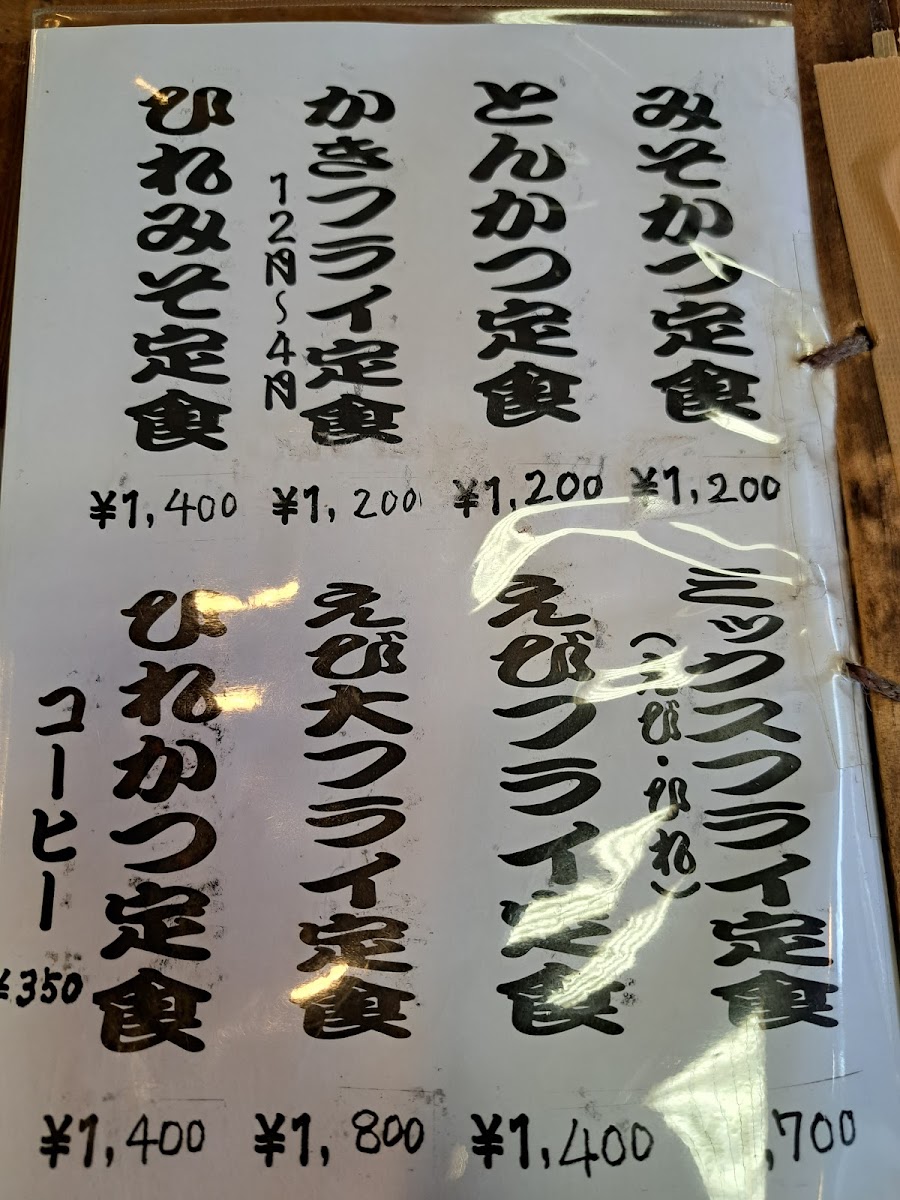 みそかつ定食
¥1,200
とんかつ定食
¥1,200
かきフライ定食
12月～4月
¥1,200
ひれみそ定食
¥1,400
ミックスフライ定食
（えび・ひれ）
,700
えびフライ定食
¥1,400
えび大フライ定食
¥1,800
ひれかつ定食
¥1,400
コーヒー
¥350